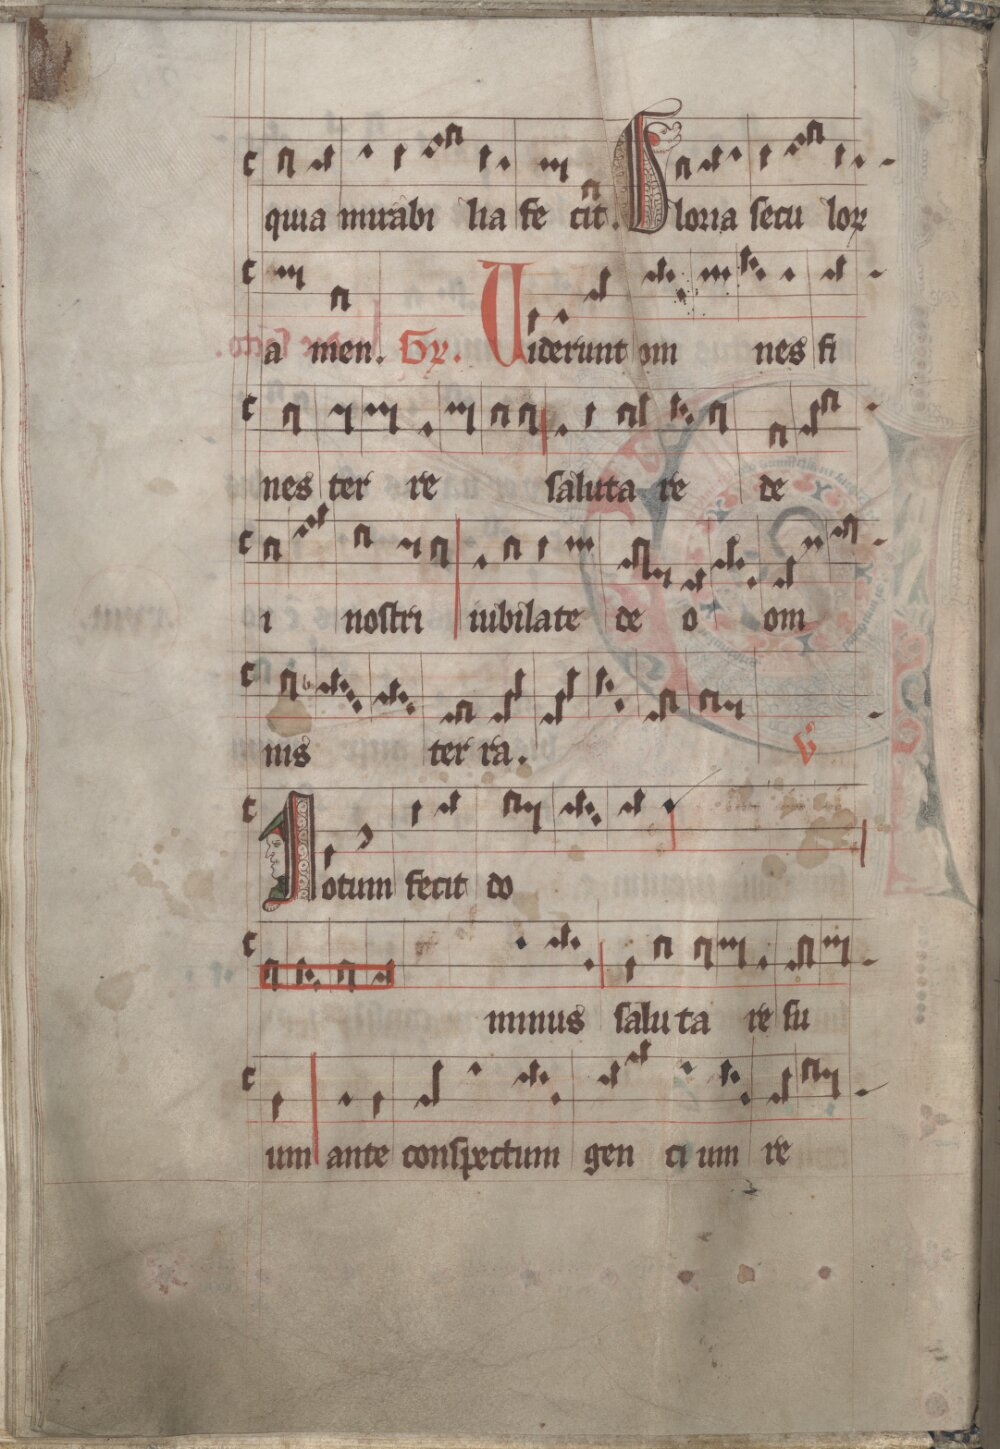 quia mirabi lia fe cit. Gloria secu loꝝ
a men. Gr̃. Uiderunt om nes fi
nes ter re saluta re de
i nostri iubilate de o om
nis ter ra. ℣
Notum fecit do
minus salu ta re su
um ante conspectum gen ci um re